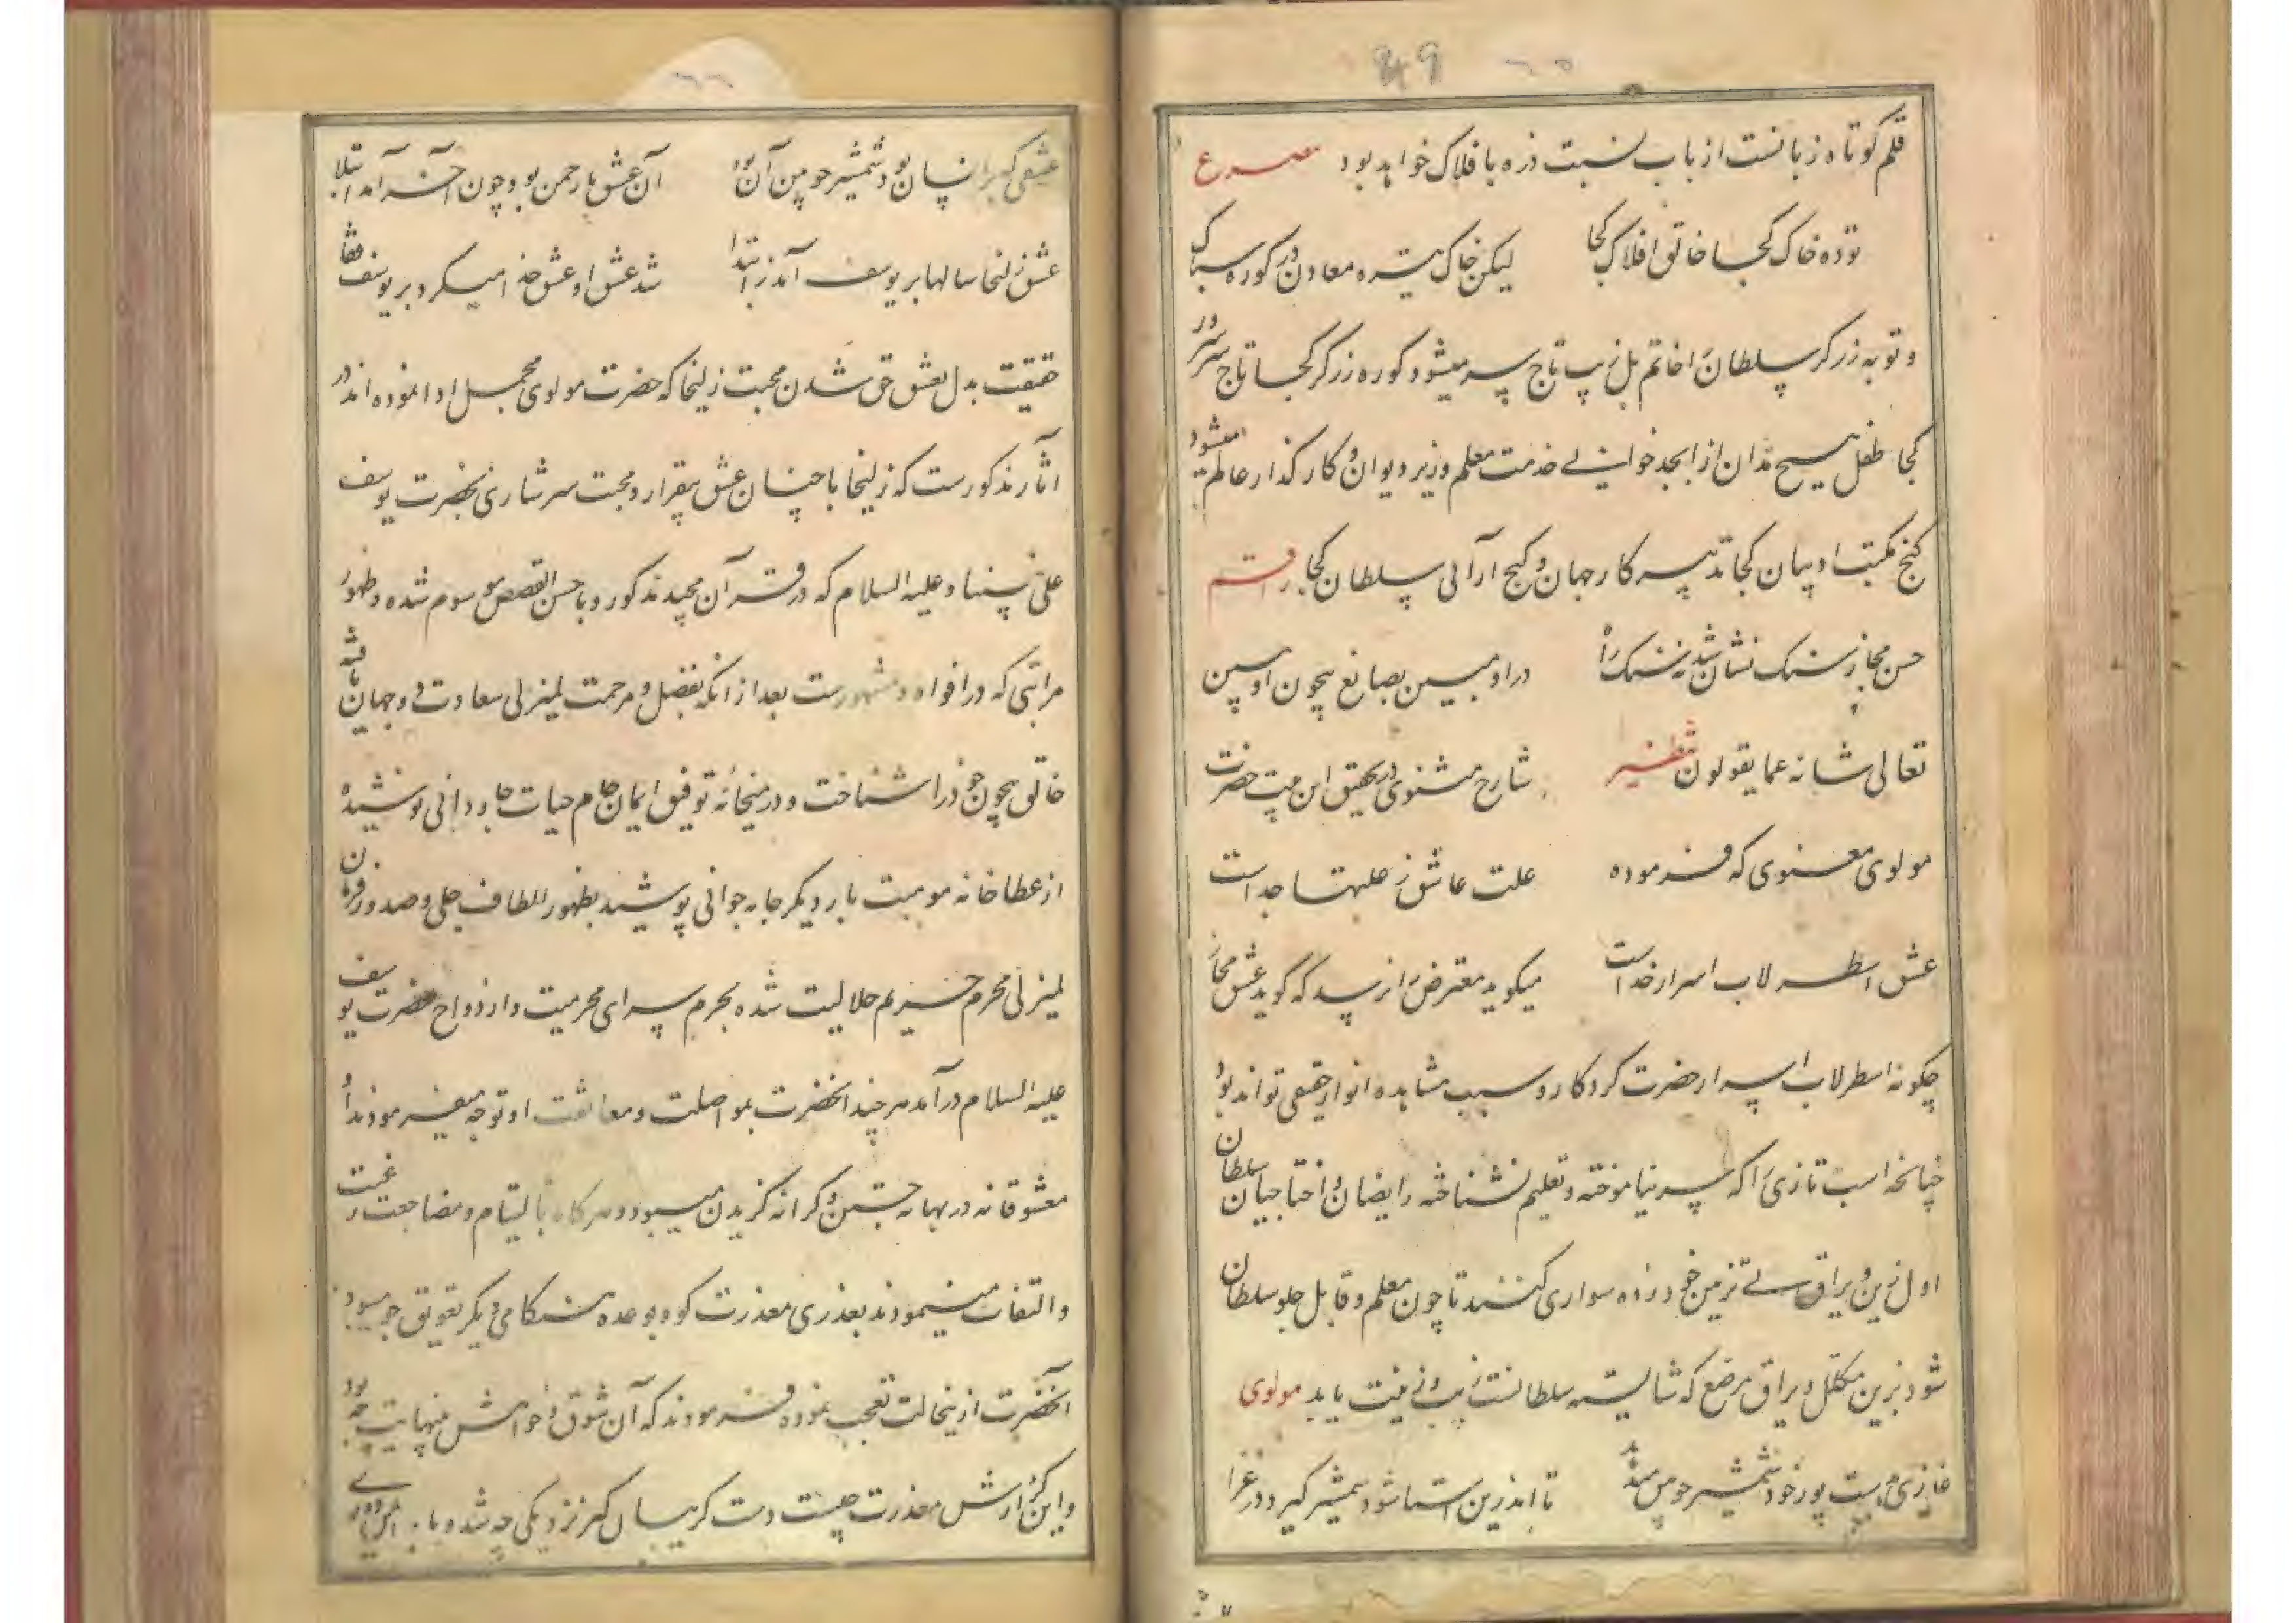 49 ٦٥
قلم کوتاه زبانست از باب نسبت ذره با افلاک خواهد بود مصرع
توده خاک کجا خالق افلاک کجا لیکن خاک تیره معادن در کوره سباک
و توبه زرکر سلطان را خاتم بل زیب تاج سر میشود کوره زرکر کجا تاج سرور
کجا طفل هیچ مدان از ابجد خوانی خدمت معلم وزیر دیوان و کارکذار عالم میشود
کنج مکتب ادیبان کجا تدبیر کار جهان و کنج آرائی سلطان کجا رقم
حسن مجاز سنک نشان شد نه سنک راه در او مبین بصانع بیچون او ببین
تعالی شانه عما یقولون نظیر شارح مثنوی در تحقیق این بیت حضرت
مولوی معنوی که فرموده علت عاشق ز علتها جداست
عشق اسطرلاب اسرار خداست میکوید معترض را نرسد که کوید عشق مجاز
چکونه اسطرلاب اسرار حضرت کردکار و سبب مشاهده انوار حقیقی تواند بود
چنانچه اسب تازی را که سر نیاموخته و تعلیم نشناخته رایضان و اختاجیان سلطان
اول زین و یراق بی تزیین خود زده سواری کنند تا چون معلم و قابل جلو سلطان
شود بزین مکلل و یراق مرصع که شایسته سلطانست زیب و زینت یابد مولوی
غازی بدست پور خود شمشیر چوبین میدهد تا او در آن استا شود شمشیر کیرد در غزا
٦٦
عشقی که بر انسان بود شمشیر چوبین آن بود آن عشق با رحمن بود چون آخر آید ابتلا
عشق زلیخا سالها بر یوسف آمد ز ابتدا شد عشق او عشق خدا میکرد بر یوسف قفا
حقیقت بدل بعشق حق شدن محبت زلیخا که حضرت مولوی مجمل ادا نموده اند در
آثار مذکورست که زلیخا با چنان عشق بیقرار و محبت سرشاری بحضرت یوسف
علی نبینا و علیه السلام که در قرآن مجید مذکور و باحسن القصص موسوم شده و ظهور
مراتبی که در افواه مشهورست بعد از انکه بفضل و مرحمت لم یزلی سعادت دو جهان یافته
خالق بیچون خود را شناخت و در میخانه توفیق ایمان جام حیات جاودانی نوشیده
از عطاخانه موهبت بار دیکر جامه جوانی پوشید بظهور الطاف جلی و صدور فرمان
لم یزلی محرم حریم حلالیت شده بحرم سرای محرمیت و ازدواج حضرت یوسف
علیه السلام درآمد هر چند آنحضرت بمواصلت و معانقت او توجه میفرمودند او
معشوقانه در بهانه جستن و کرانه کزیدن میبود و هرکاه بالتیام و مضاجعت رغبت
و التفات مینمودند بعذری معذرت کو و بوعده هنکامی دیکر تعویق جو میبود
آنحضرت از ینحالت تعجب نموده فرمودند که آن شوق و خواهش بینهایت چه بود
و این کزارش معذرت چیست دست کریبان کیر نزدیکی چه شد و پای دوری